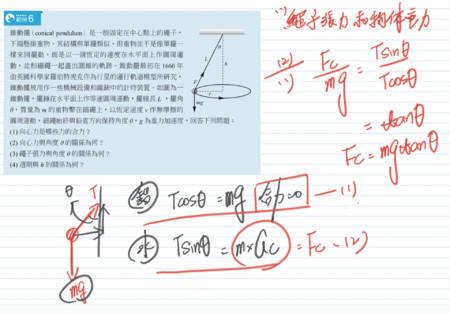 範例 6
錐動擺(conical pendulum)是一個固定在中心點上的繩子,
下端懸掛重物,其結構與單擺類似,但重物並不是像單擺一
樣來回擺動,而是以一個恆定的速度在水平面上作圓周運
動,並和細繩一起畫出圓錐的軌跡。錐動擺最初在 1660 年
由英國科學家羅伯特虎克作為行星的運行軌道模型所研究,
錐動擺被用作一些機械設備和鐘錶中的計時裝置。如圖為一
錐動擺,擺錘在水平面上作等速圓周運動,擺線長 L,擺角
θ,質量為 m 的重物繫在細繩上,以恆定速度 v 作無摩擦的
圓周運動,細繩始終與鉛直方向保持角度 θ,g 為重力加速度,回答下列問題:
(1) 向心力是哪些力的合力?
(2) 向心力與角度 θ 的關係為何?
(3) 繩子張力與角度 θ 的關係為何?
(4) 週期與 h 的關係為何?
θ
L
h
F
r
mg
(1) 繩子張力和物體重力
(2)/(1) Fc/mg = Tsinθ/Tcosθ
= tanθ
Fc = mgtanθ
θ T
鉛 Tcosθ = mg 合力=0 —(1)
水 Tsinθ = m×ac = Fc -(2)
mg